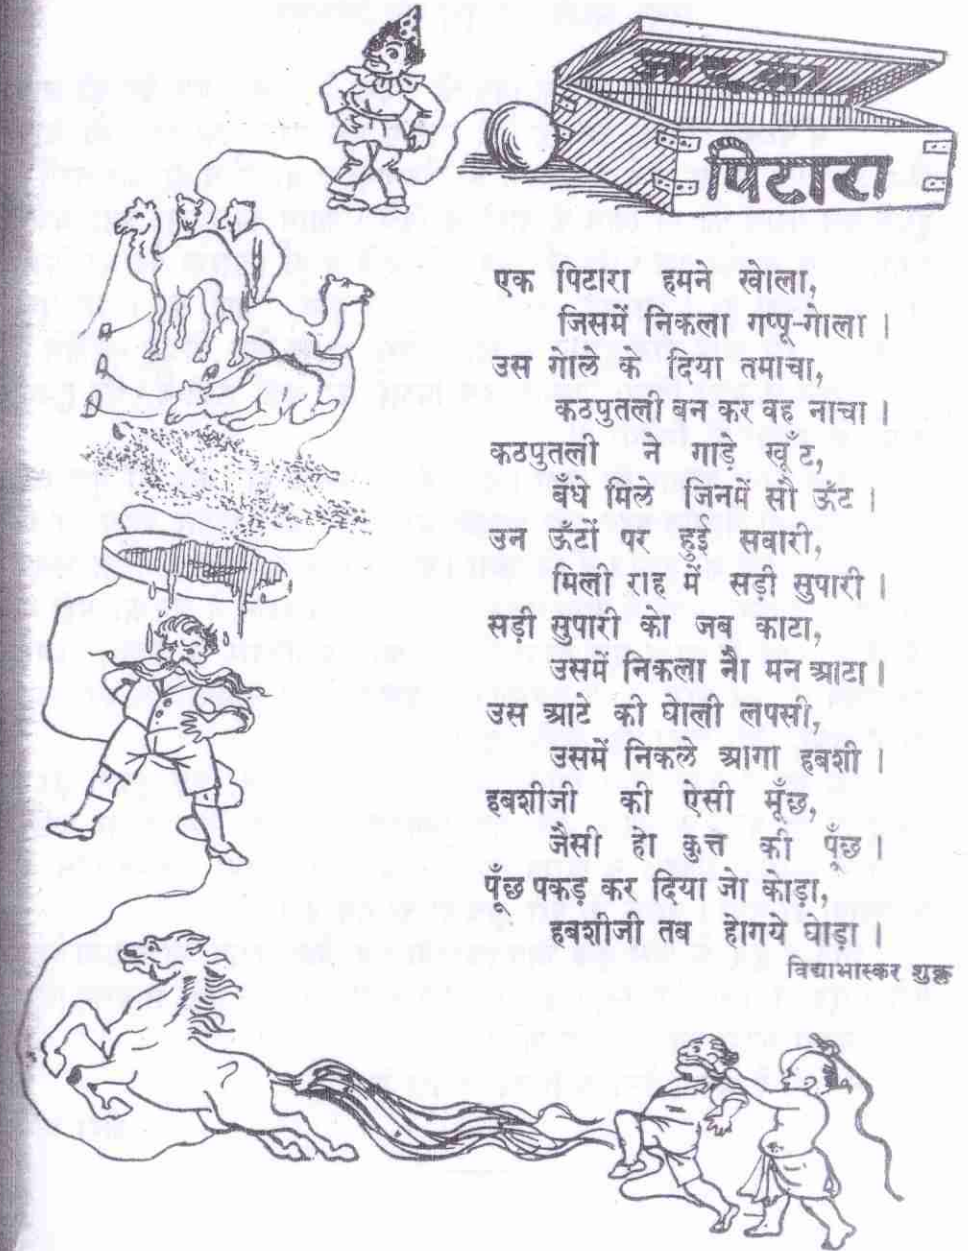 जादू का
पिटारा
एक पिटारा हमने खोला,
जिसमें निकला गप्पू-गोला ।
उस गोले के दिया तमाचा,
कठपुतली बन कर वह नाचा ।
कठपुतली ने गाड़े खूँट,
बँधे मिले जिनमें सौ ऊँट ।
उन ऊँटों पर हुई सवारी,
मिली राह में सड़ी सुपारी ।
सड़ी सुपारी को जब काटा,
उसमें निकला नौ मन आटा ।
उस आटे की घोली लपसी,
उसमें निकले आगा हबशी ।
हबशीजी की ऐसी मूँछ,
जैसी हो कुत्ते की पूँछ ।
पूँछ पकड़ कर दिया जो कोड़ा,
हबशीजी तब होगये घोड़ा ।
विद्याभास्कर शुक्ल